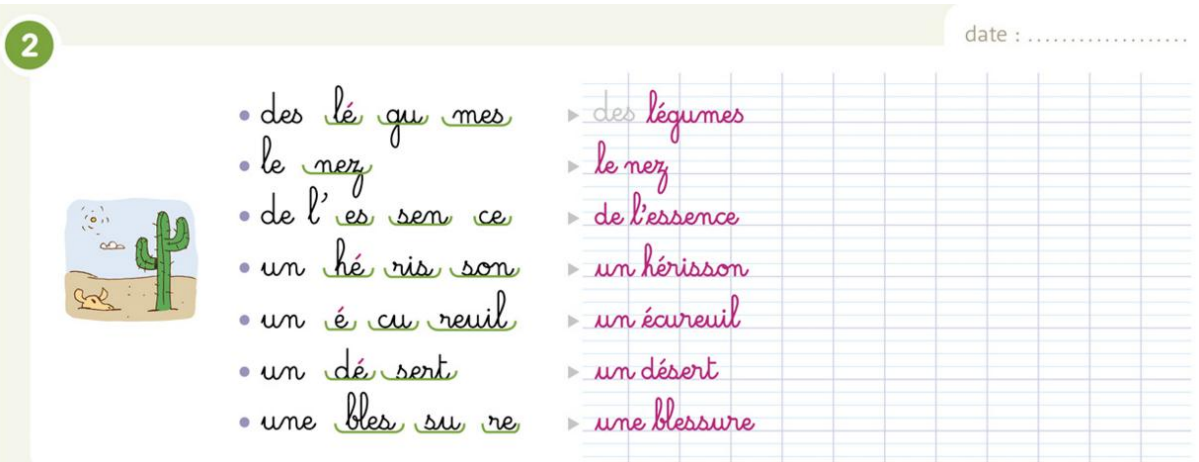 2
date : ...................
• des lé gu mes ▸ des légumes
• le nez ▸ le nez
• de l' es sen ce ▸ de l'essence
• un hé ris son ▸ un hérisson
• un é cu reuil ▸ un écureuil
• un dé sert ▸ un désert
• une bles su re ▸ une blessure